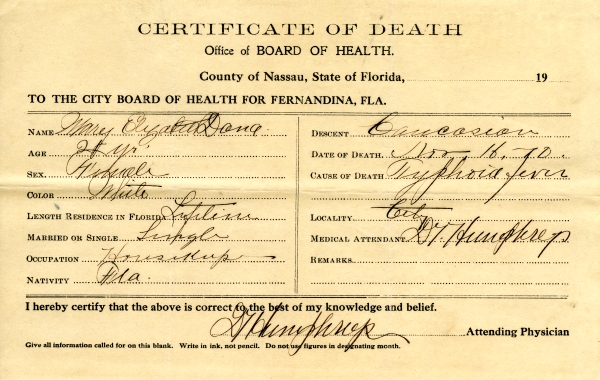 CERTIFICATE OF DEATH
Office of BOARD OF HEALTH.
County of Nassau, State of Florida, 19
TO THE CITY BOARD OF HEALTH FOR FERNANDINA, FLA.
NAME Mary Elizabeth Dana
AGE yr
SEX. Female
COLOR White
LENGTH RESIDENCE IN FLORIDA Lifetime
MARRIED OR SINGLE Single
OCCUPATION
NATIVITY Fla.
DESCENT Caucasian
DATE OF DEATH. Nov 16-10.
CAUSE OF DEATH Typhoid fever
LOCALITY. City
MEDICAL ATTENDANT. Humphreys
REMARKS
I hereby certify that the above is correct to the best of my knowledge and belief.
Humphreys Attending Physician
Give all information called for on this blank. Write in ink, not pencil. Do not use figures in designating month.